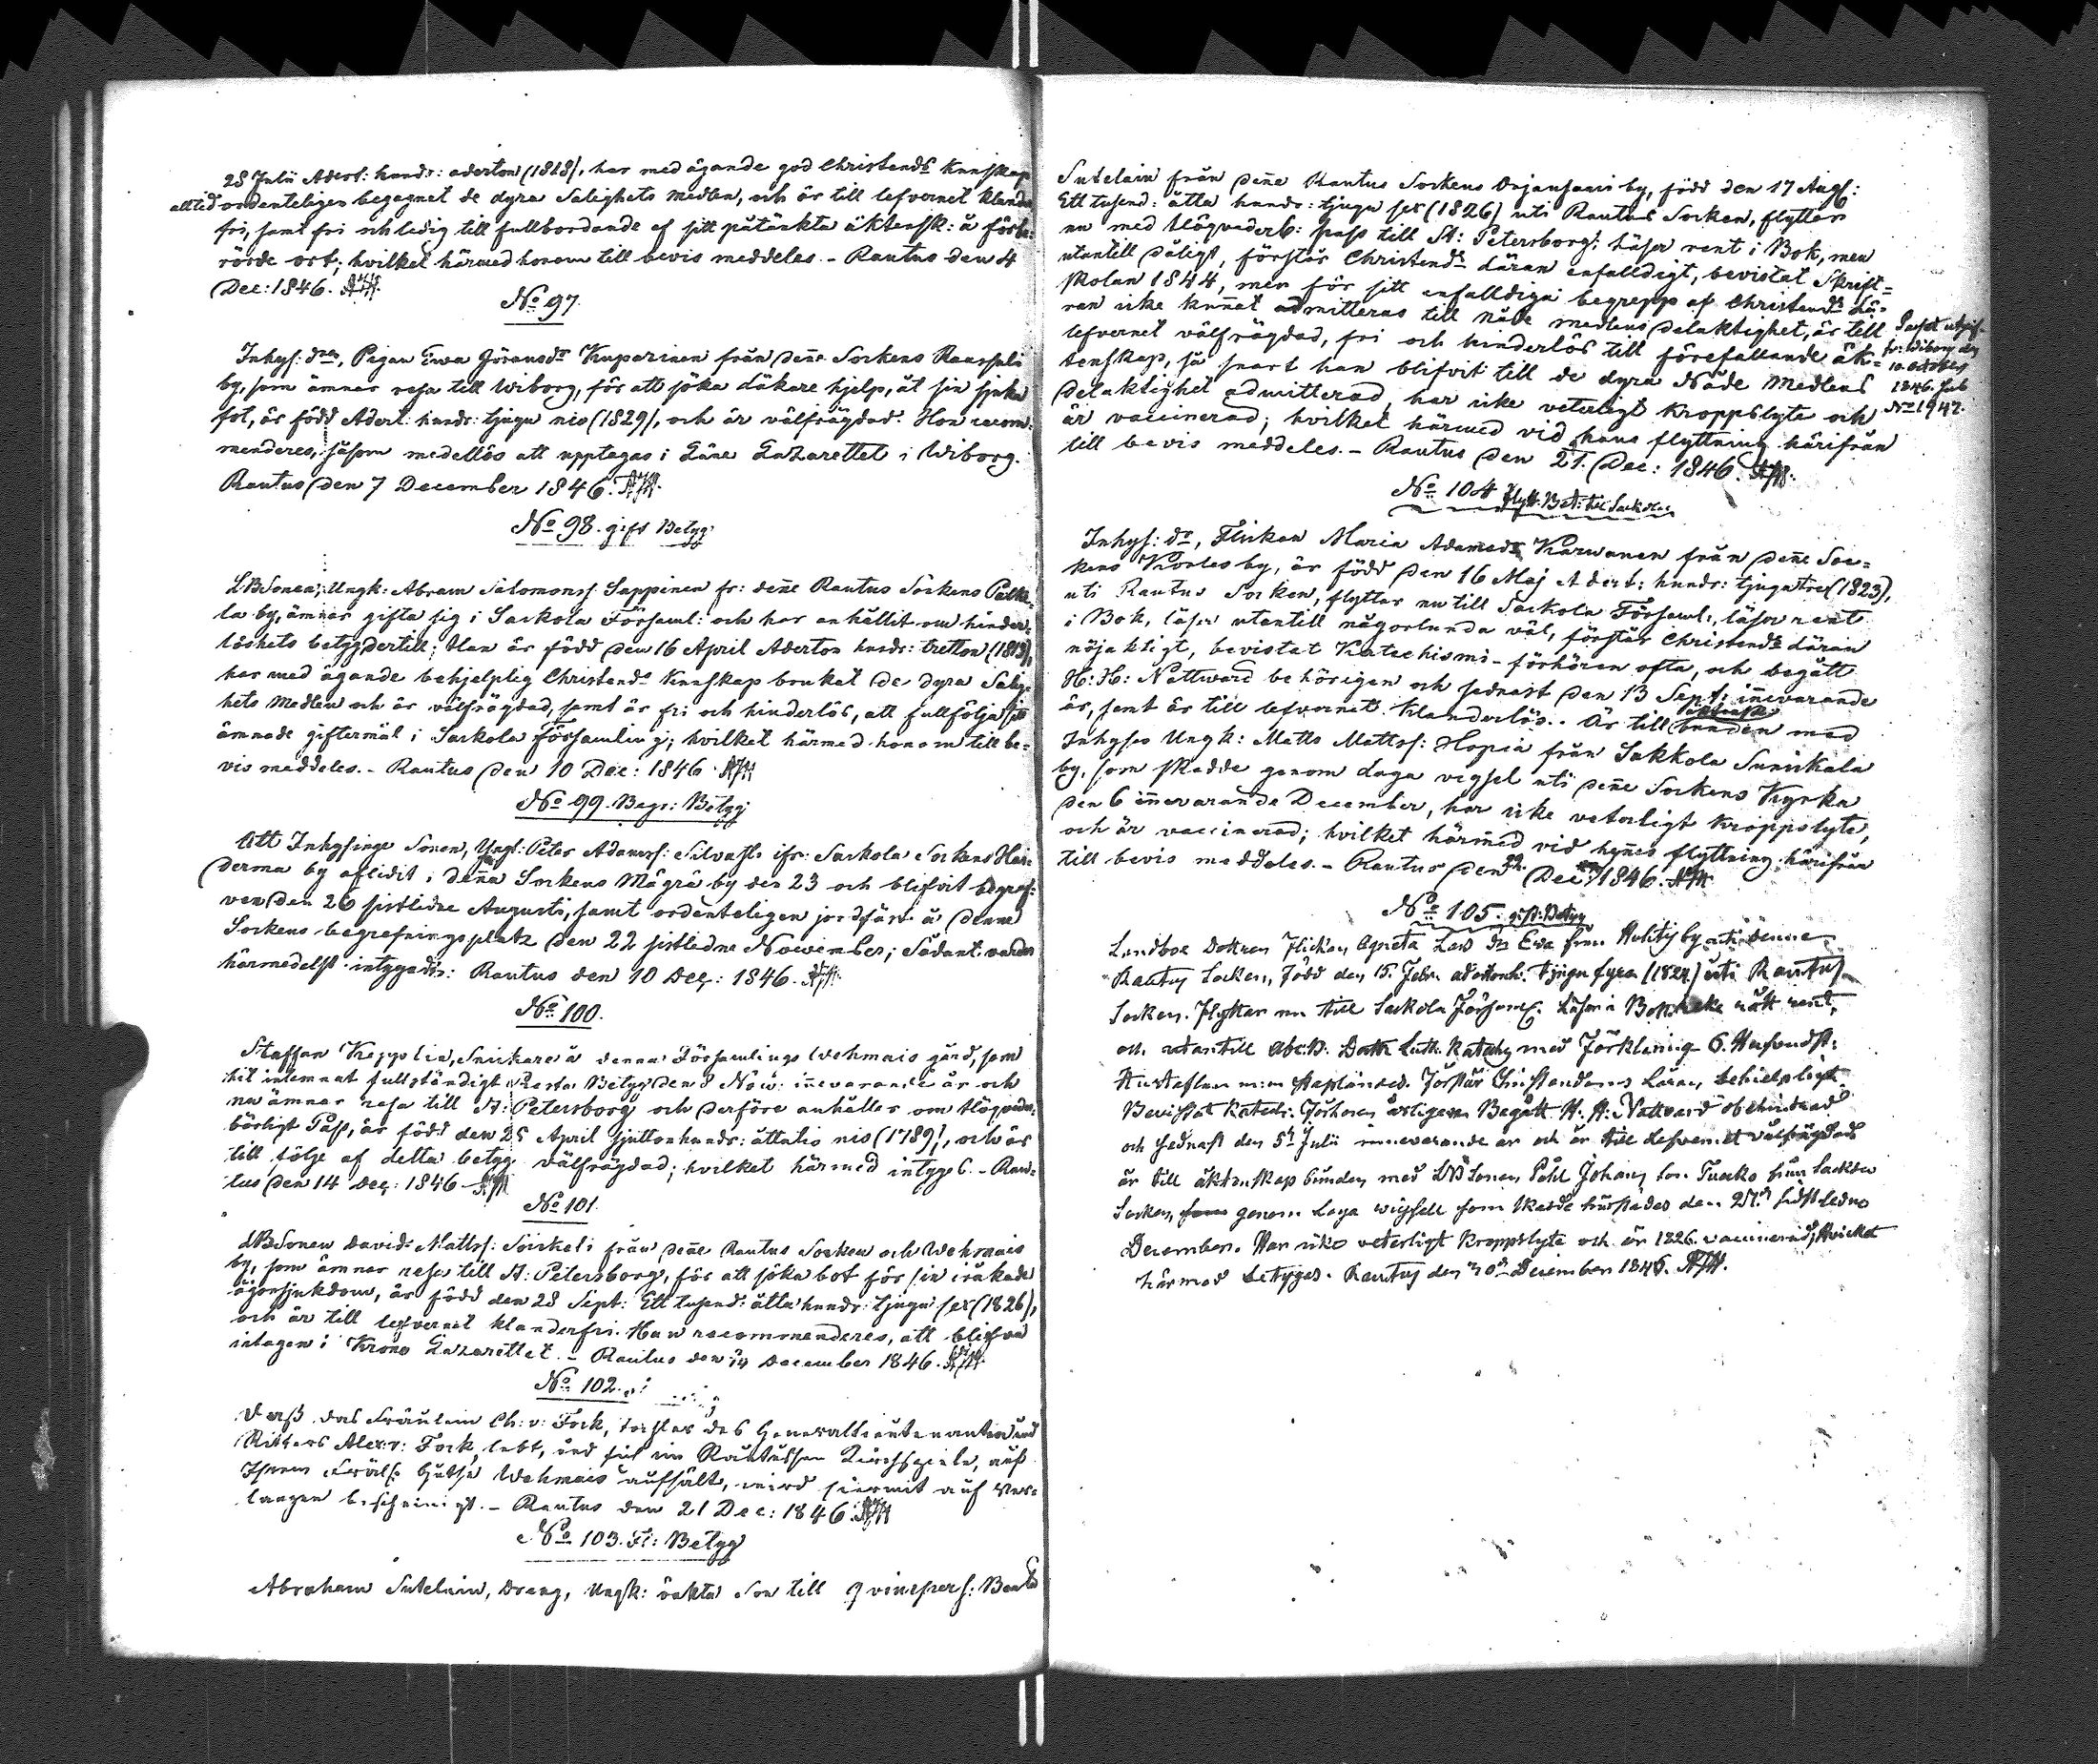 28 Julii Adert: hundr: aderton (1818), har med ägande god Christends Kunskap
alltid ordenteligen begagnat de dyra Salighets medlen, och är till lefvernet klander
fri, samt fri och ledig till fullbordande af sitt påtänkta äktensk: å förbe-
rörde ort; hvilket härmed honom till bevis meddelas. - Rautus den 4
Dec: 1846.
No 97.
Inhys: dr, Pigan Ewa Göransdr Kuparinen från denne Sockens Raasuli
by, som ämnar resa till Wiborg, för att söka läkare hjelp, åt sin sjuka
fot, är född Adert: hundr: tjugu nio (1829), och är välfrägdad. Hon recom-
menderes, såsom medellös att upptagas i Läne Lazarettet i Wiborg.
Rautus den 7 December 1846.
No 98. gift Betyg
LBSonen, Ungk: Abram Salomonss: Sappinen fr: denne Rautus Sockens
la by, ämnar gifta sig i Sackola Församl: och har anhållit om hinder-
löshets betyg dertill; Han är född den 16 April Aderton hundr: tretton (1813),
har med ägande behjelplig Christends Kunskap brukat de dyra Salig-
hets medlen och är välfrägdad, samt är fri och hinderlös, att fullfölja sitt
ämnade giftermål i Sackola Församling; hvilket härmed honom till be-
vis meddeles. - Rautus den 10 Dec: 1846.
No 99. Begr: Betyg
Att Inhysinge Sonen, Yngl: Peter Adamss: Silvast ifr: Sackola Sockens
derma by aflidit i denna Sockens Mägrä by den 23 och blifvit begraf-
ven den 26 sistledne Augusti, samt ordenteligen jordfäst å denne
Sockens begrefningsplatz den 22 sistledne November; Sådant varder
härmedelst intygadt: Rautus den 10 Dec: 1846.
No 100.
Staffan Snickare å denna Församlings Wehmais gård, som
hit inlemnat fullständigt Prests Betyg den 8 Nov: innevarande år och
nu ämnar resa till St: Petersborg och derföre anhåller om Högveder-
börligt Pass, är född den 25 April sjuttonhundr: åttatio nio (1789), och är
till följe af detta betyg välfrägdad; hvilket härmed intygas. - Rau-
tus den 14 Dec: 1846
No 101.
LBSonen David Mattss: från denne Rautus Socken och Wehmais
by, som ämnar resa till St: Petersborg, för att söka bot för sin iråkade
ögonsjukdom, är född den 28 Sept: Ett tusend: åtta hundr: tjugu sex (1826),
och är till lefvernet klanderfri. Han recommenderes, att blifva
intagen i Krono Lazarettet. - Rautus den 14 December 1846.
No 102.
Dass das Fräulein Ch: v: Fock, tochter des Generallieutenanten und
Ritters Alexr: Fock, lebt, und sich im Rautusschen Kirchspiele, auf
Ihrem Fräls: Gute Wehmais aufhält, wird hiermit auf Ver-
langen bescheinigt. - Rautus den 21 Dec: 1846.
No 103. Fl: Betyg
Abraham Sutelain, Dräng, Ungk: oäkta Son till qvinspers:
Sutelain från denne Rautus Sockens Orjansaari by, född den 17 Aug:
Ett tusend: åtta hundr: tjugu sex (1826) uti Rautus Socken, flyttar
nu med Högvederb: pass till St: Petersborg; läser rent i Bok, men
utantill dåligt, förstår Christends läran enfalldigt, bevistat Skrift-
skolan 1844, men för sitt enfalldiga begrepp af Christends Lä-
ran icke kunnat admitteras till Nåde medlens delaktighet, är till
lefvernet välfrägdad, fri och hinderlös till förefallande äk-
tenskap, så snart han blifvit till de dyra Nåde Medlens
delaktighet admitterad, har icke veterligt kroppslyte och
är vaccinerad; hvilket härmed vid hans flyttning härifrån
till bevis meddeles. - Rautus den 21 Dec: 1846.
Passet utgif-
fr: Wiborg den
10 October
1846. sub
No 1947.
No 104 Flytt. Bet: till Sackola
Inhys: dr, Flickan Maria Adamsdr Karwanen från denne Soc-
kens by, är född den 16 Maj Adert: hundr: tjugutre (1823),
uti Rautus Socken, flyttar nu till Sackola Församl:, läser rent
i Bok, läser utantill någorlunda väl, förstår Christends läran
nöjaktigt, bevistat Katechismi-förhören ofta, och begått
H: H: Nattvard behörigen och sednast den 13 Sept: innevarande
år, samt är till lefvernet klanderlös. Är till äktensk: bunden med
Inhyses Ungk: Matts Mattss: Hopia från Sakkola
by, som skedde genom laga vigsel uti denne Sockens Kyrka
den 6 innevarande December, har icke veterligt kroppslyte,
och är vaccinerad; hvilket härmed vid hennes flyttning härifrån
till bevis meddeles. - Rautus den 22 Dec: 1846.
No 105. gift: Betyg
Landboe Dottren Flickan Agneta dr Ewa från by uti denne
Rautus Socken, Född den 15. Febr. adertonh: tjugu fyra (1824) uti Rautus
Socken. Flyttar nu till Sackola Församl. Läser i Bok icke nått rent,
och utantill Abc:B: Luth. Kateches med Förklaring
Hustaflan Förstår Christendoms Läran behielpligt.
Bevistat Katech: Förhören årligen Begått H. H. Nattvard obehindrad
och sednast den 5te Julii innevarande år och är till lefvernet välfrägdad
är till äktenskap bunden med LBSonen Påhl Johans son från Sackola
Socken, genom Laga wigsell som skedde den sidstledne
December. Har icke veterligt kroppslyte och är 1826 vaccinerad, hvilket
härmed betygas. Rautus den 30 December 1846.